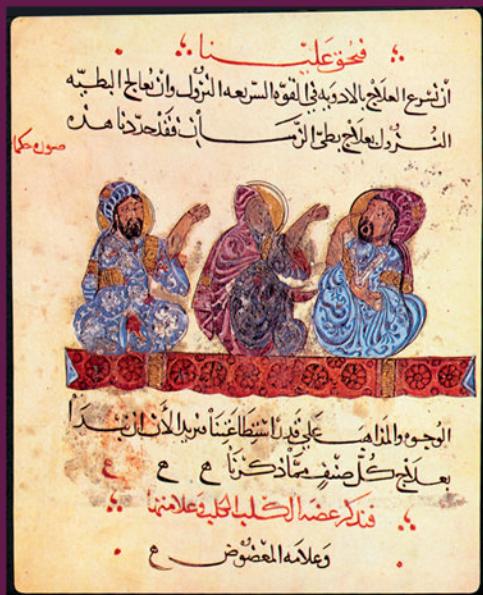 فيحق علينا
أن نسرع العلاج بالادويه في القوه السريعه النزول وان نعالج البطيه
النزول بعلاج بطي الزمان فقد حددنا هذه
صوره حكما
الوجوه والمذاهب علي قدر استطاعتنا فنريد الأن ان نبدأ
بعلاج كل صنف مما ذكرنا
فنذكر عضه الكلب الكلب وعلامتها
وعلامه المعضوض